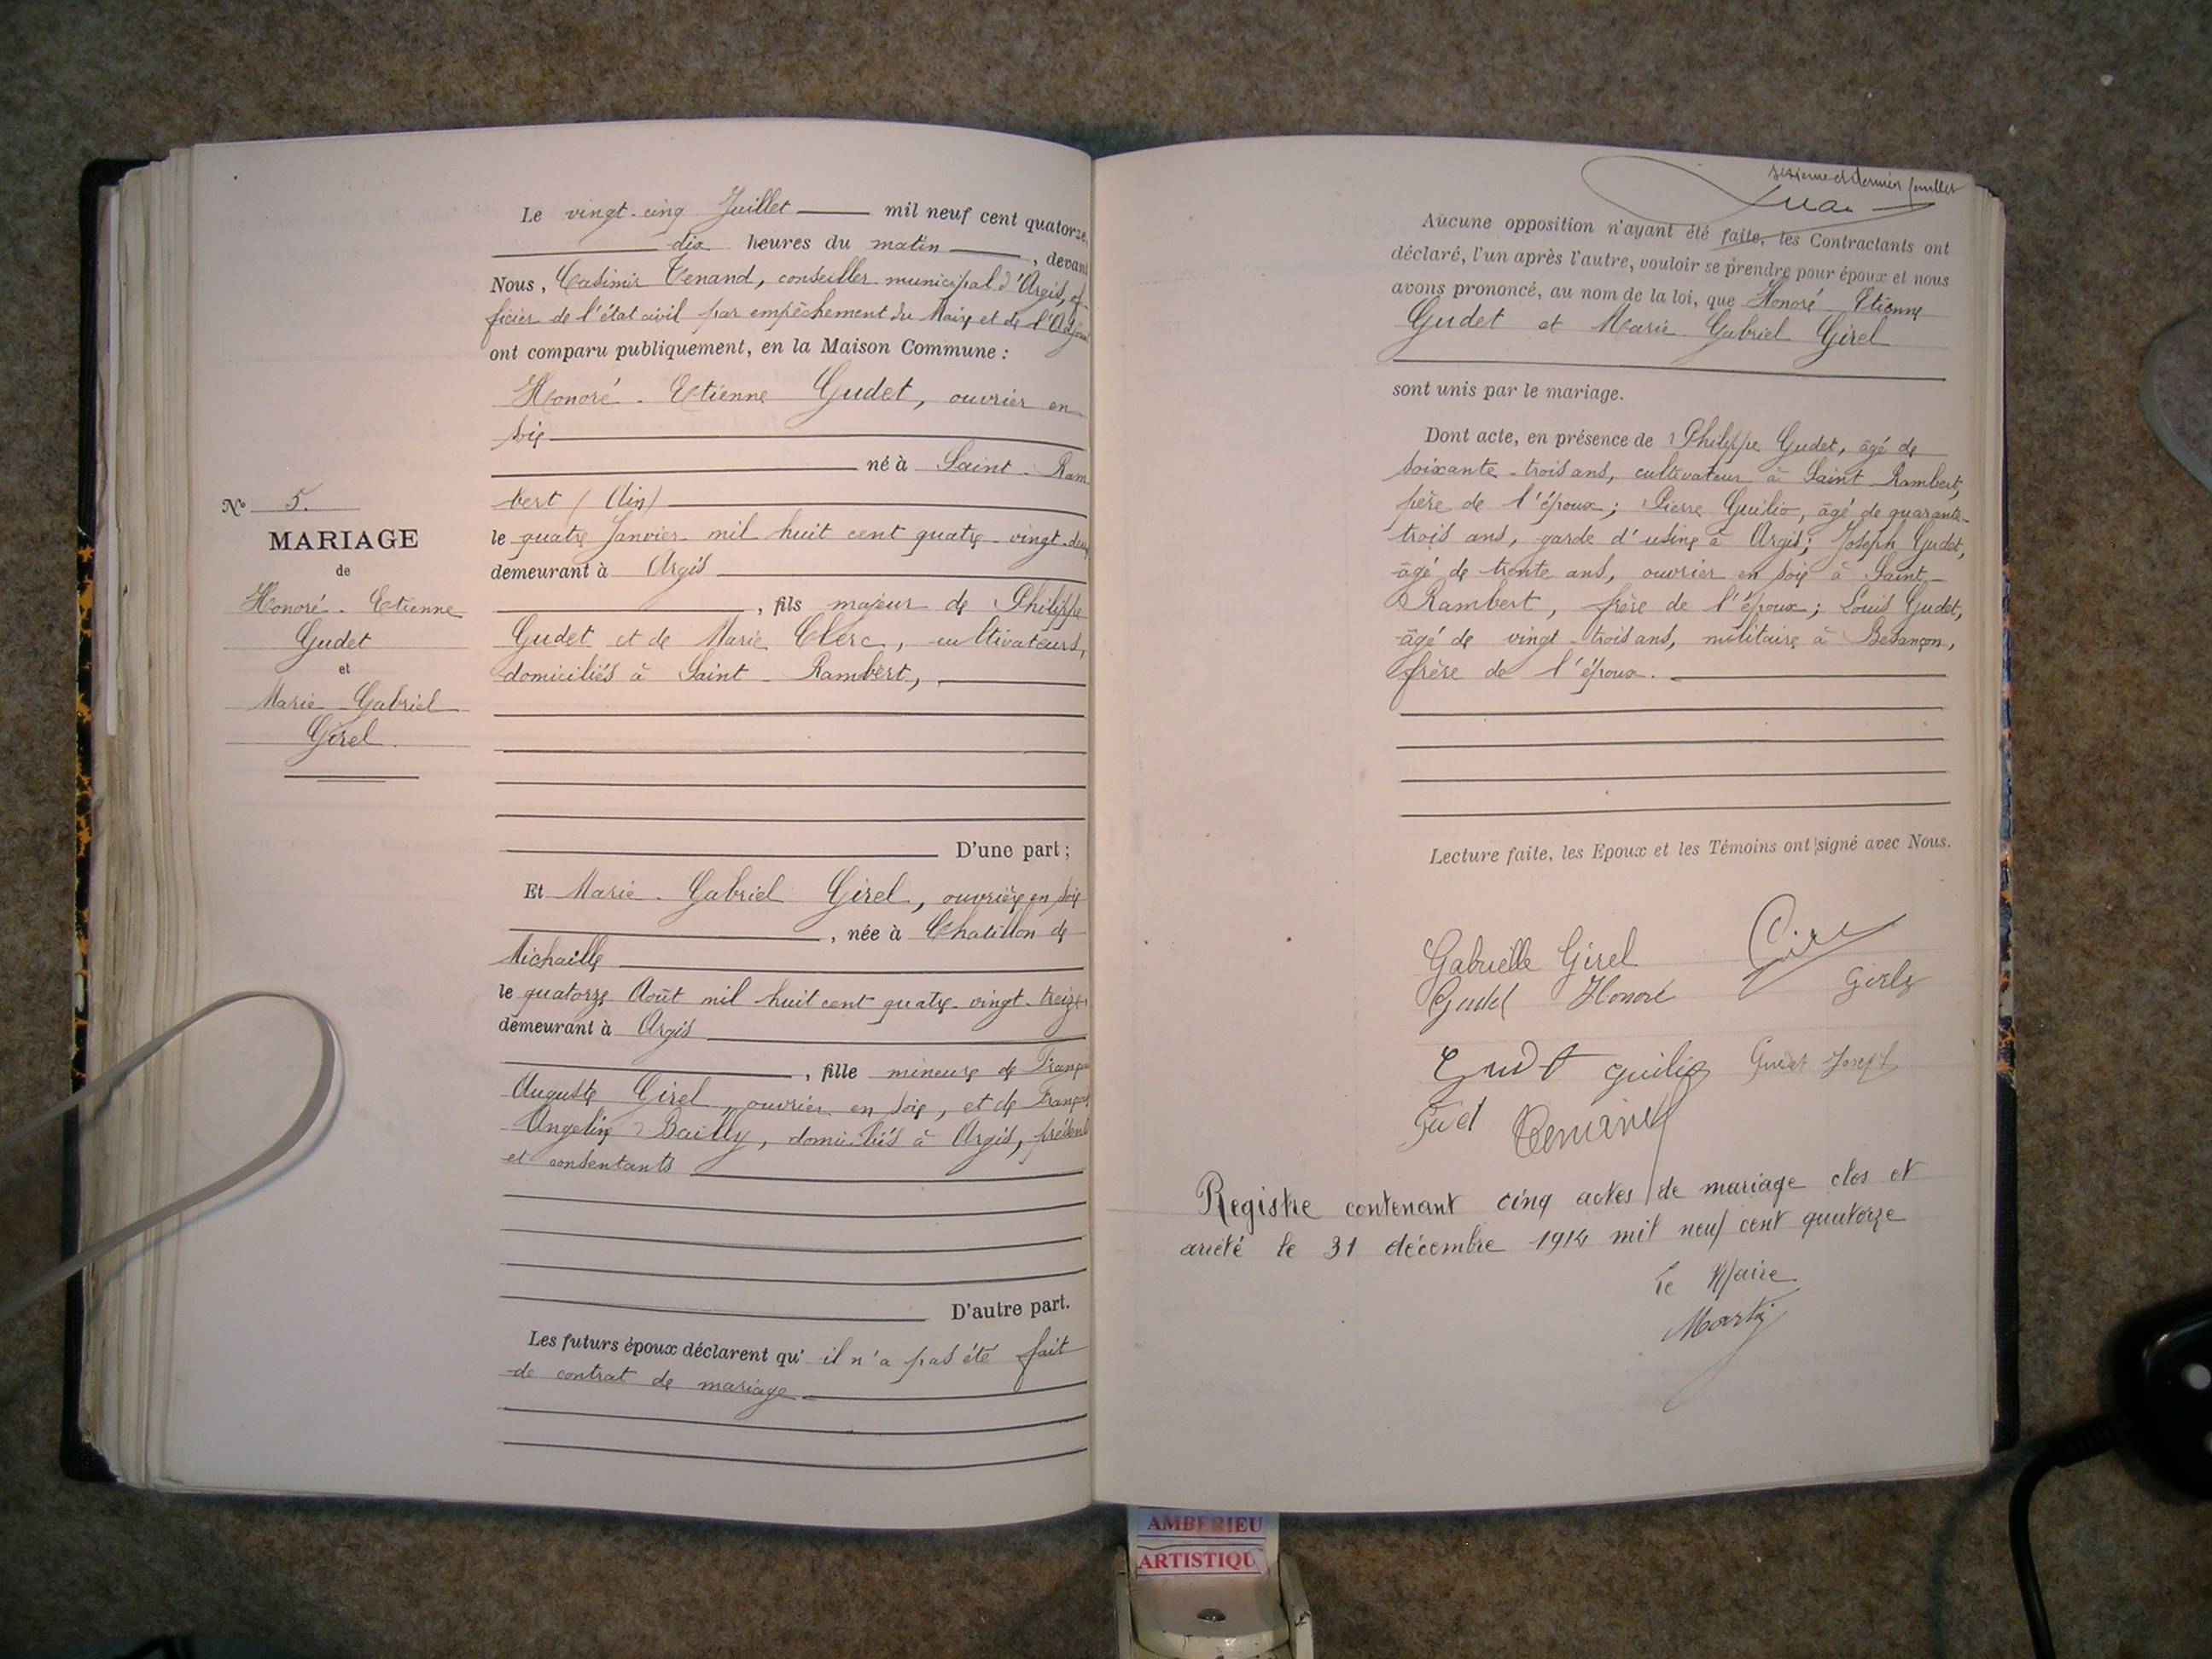 Le vingt-cinq Juillet mil neuf cent quatorze,
dix heures du matin, devant
Nous, Casimir Tenand, conseiller municipal d'Argis, of-
ficier de l'état civil par empêchement du Maire et de l'Adjoint
ont comparu publiquement, en la Maison Commune :
Honoré-Etienne Gudet, ouvrier en
soie
né à Saint-Ram
bert (Ain)
le quatre Janvier mil huit cent quatre-vingt-deux
demeurant à Argis
, fils majeur de Philippe
Gudet et de Marie Clerc, cultivateurs,
domiciliés à Saint-Rambert,
N° 5.
MARIAGE
de
Honoré-Etienne
Gudet
et
Marie-Gabriel
Girel
D'une part ;
Et Marie-Gabriel Girel, ouvrière en soie
, née à Chatillon de
Michaille
le quatorze Août mil huit cent quatre-vingt-treize
demeurant à Argis
, fille mineure de
Auguste Girel, ouvrier en soie, et de
Angeline Bailly, domiciliés à Argis, présents
et consentants
D'autre part.
Les futurs époux déclarent qu'il n'a pas été fait
de contrat de mariage
sixième et dernier feuillet
Aucune opposition n'ayant été faite, les Contractants ont
déclaré, l'un après l'autre, vouloir se prendre pour époux et nous
avons prononcé, au nom de la loi, que Honoré Etienne
Gudet et Marie Gabriel Girel
sont unis par le mariage.
Dont acte, en présence de Philippe Gudet, âgé de
soixante-trois ans, cultivateur à Saint Rambert,
père de l'époux ; Pierre Guilio, âgé de quarante-
trois ans, garde d'usine à Argis ; Joseph Gudet,
âgé de trente ans, ouvrier en soie à Saint-
Rambert, frère de l'époux ; Louis Gudet,
âgé de vingt-trois ans, militaire à Besançon,
frère de l'époux.
Lecture faite, les Epoux et les Témoins ont signé avec Nous.
Gabrielle Girel
Gudet Honoré
Gudet Guilio Gudet Joseph
Registre contenant cinq actes de mariage clos et
arrêté le 31 décembre 1914 mil neuf cent quatorze
Le Maire
AMBERIEU
ARTISTIQU